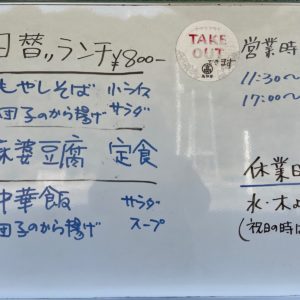 日替ランチ ¥800-
もやしそば 小ライス
団子のから揚げ サラダ
麻婆豆腐 定食
中華飯 サラダ
団子のから揚げ スープ
TAKE
OUT
できます
営業時
11:30~
17:00~
休業日
水・木
(祝日の時は